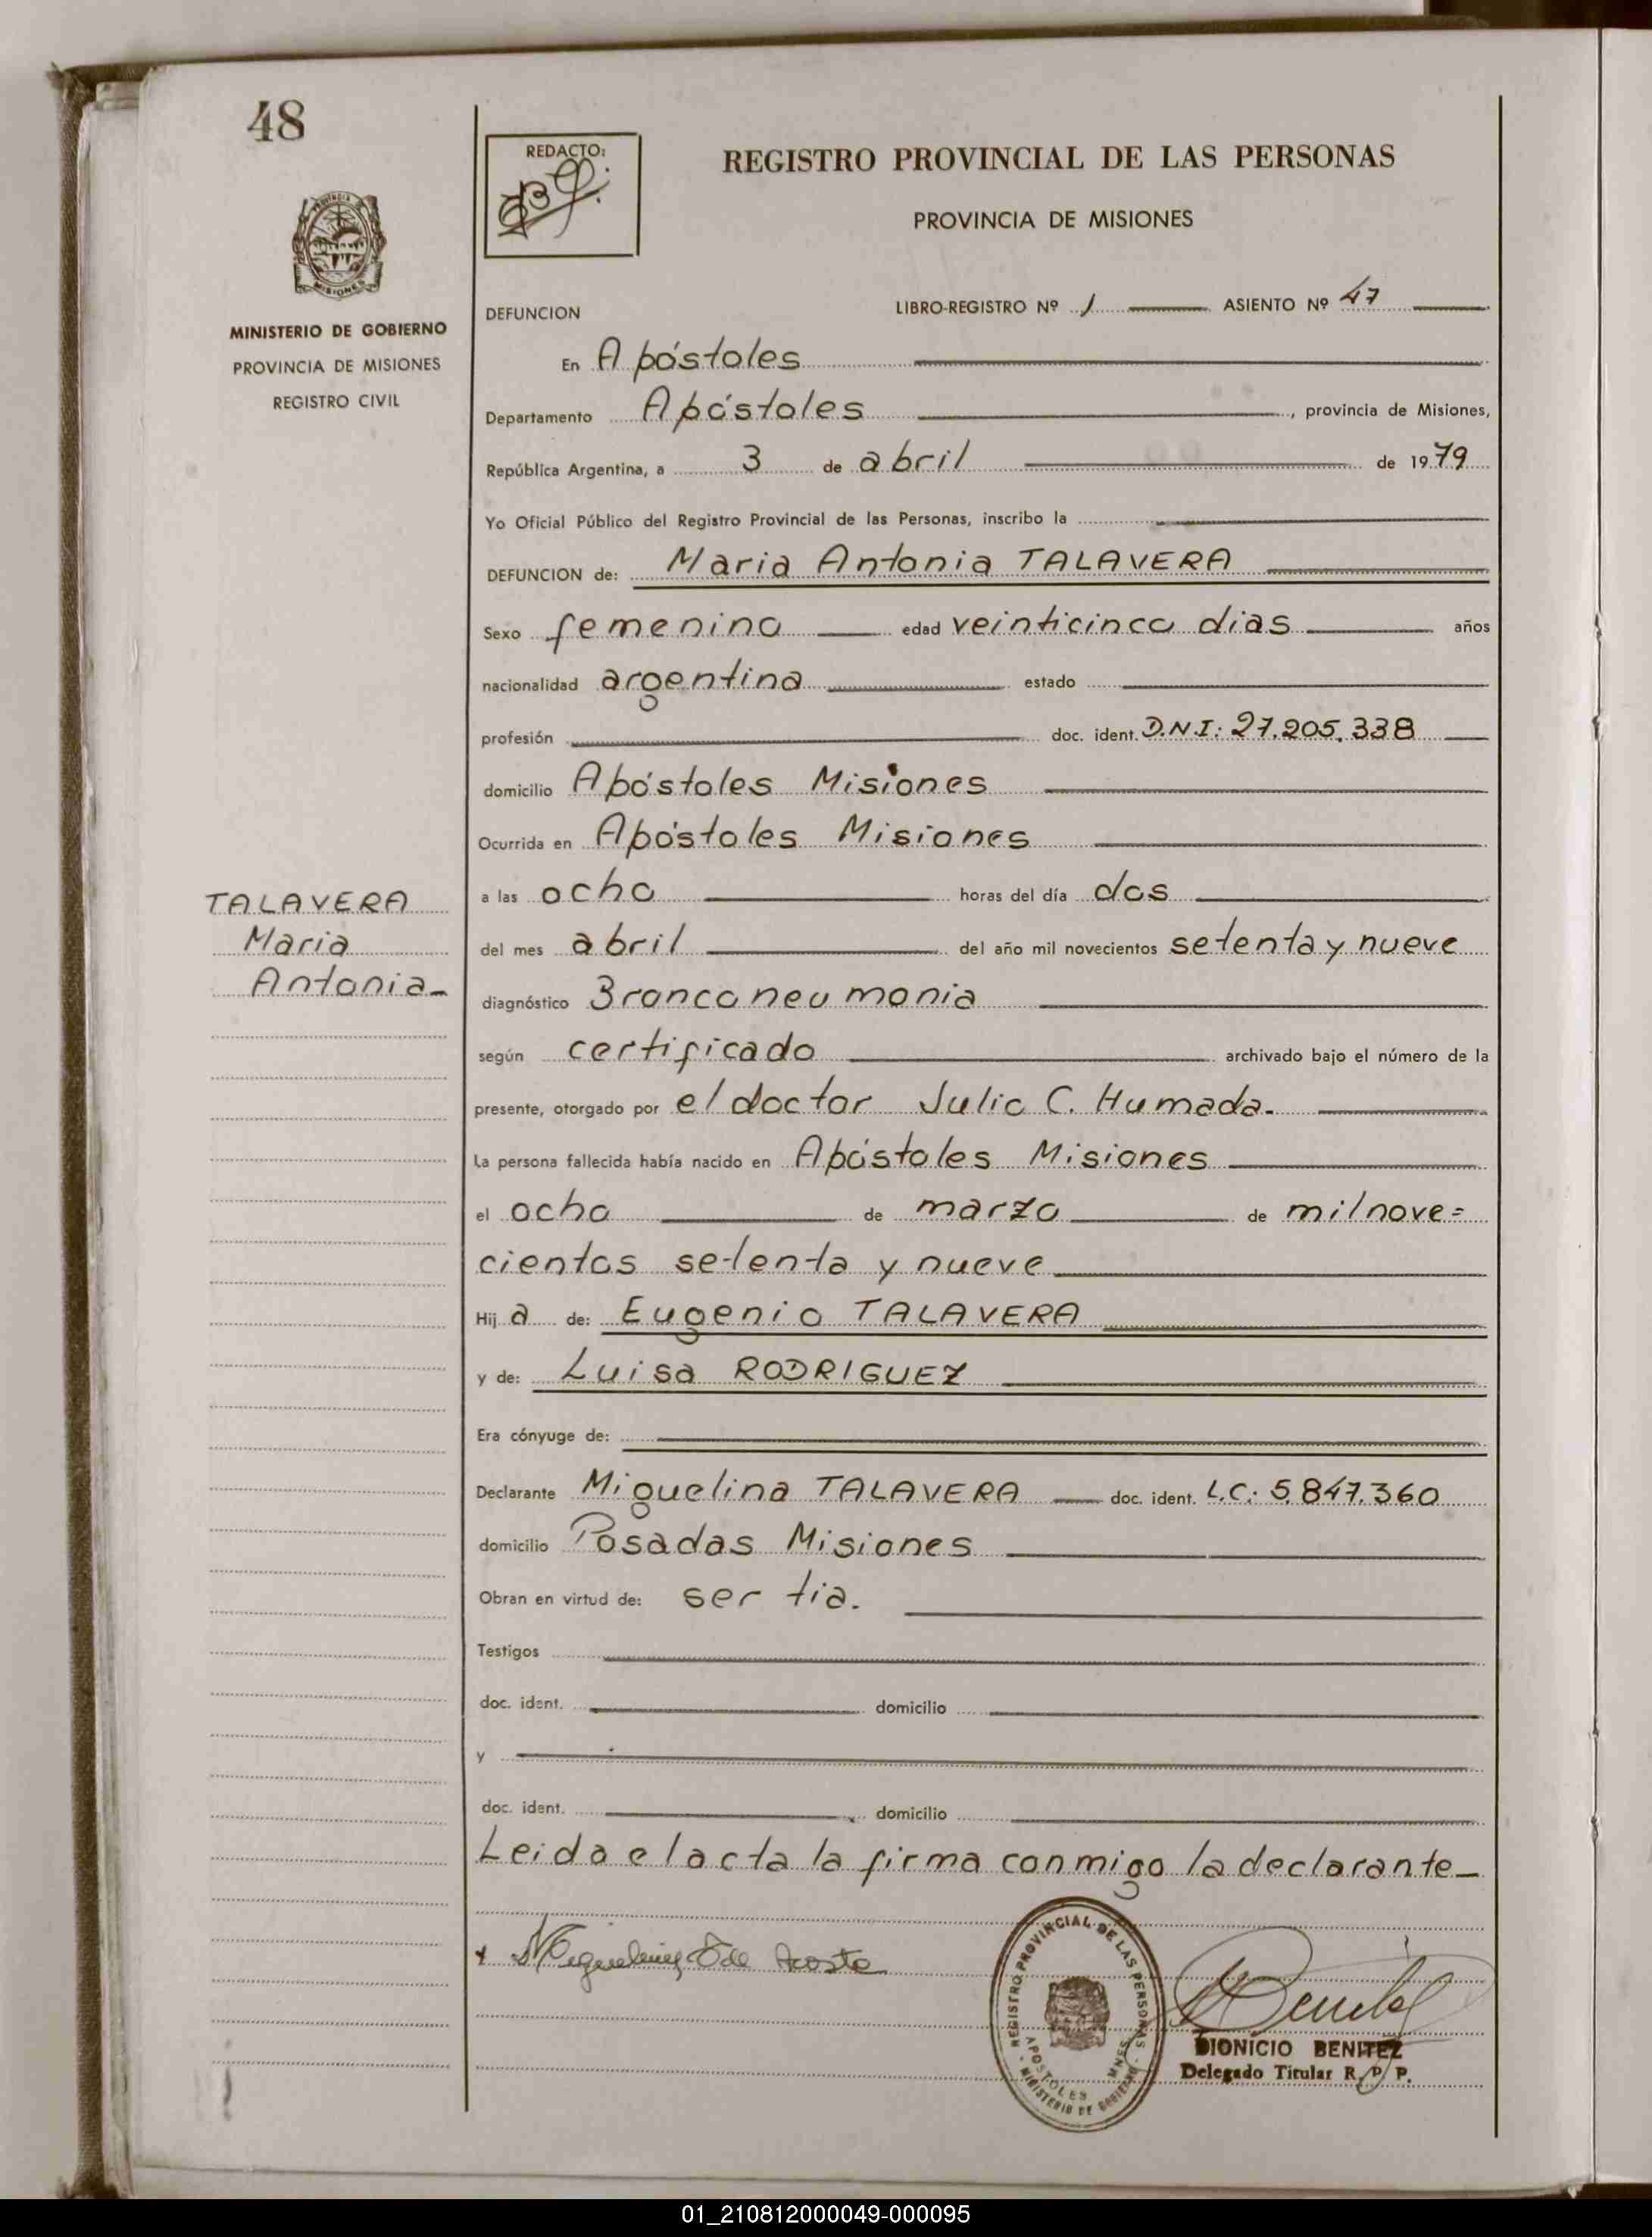 48
REDACTO:
REGISTRO PROVINCIAL DE LAS PERSONAS
PROVINCIA DE MISIONES
MISIONES
MINISTERIO DE GOBIERNO
PROVINCIA DE MISIONES
REGISTRO CIVIL
DEFUNCION LIBRO-REGISTRO Nº 1 ASIENTO Nº 47
En Apóstoles
Departamento Apóstoles, provincia de Misiones,
República Argentina, a 3 de abril de 1979
Yo Oficial Público del Registro Provincial de las Personas, inscribo la
DEFUNCION de: Maria Antonia TALAVERA
Sexo femenino edad veinticinco dias años
nacionalidad argentina estado
profesión doc. ident. D.N.I: 27.205.338
domicilio Apóstoles Misiones
Ocurrida en Apóstoles Misiones
a las ocho horas del día dos
del mes abril del año mil novecientos setenta y nueve
diagnóstico Bronconeumonia
según certificado archivado bajo el número de la
presente, otorgado por el doctor Julio C. Humada.
La persona fallecida había nacido en Apóstoles Misiones
el ocho de marzo de mil nove=
cientos setenta y nueve
Hija de: Eugenio TALAVERA
y de: Luisa RODRIGUEZ
Era cónyuge de:
Declarante Miguelina TALAVERA doc. ident. L.C: 5.847.360
domicilio Posadas Misiones
Obran en virtud de: ser tia.
Testigos
doc. ident. domicilio
y
doc. ident. domicilio
Leida el acta la firma conmigo la declarante
TALAVERA
Maria
Antonia
de Acosta
REGISTRO PROVINCIAL DE LAS PERSONAS
APOSTOLES MNES
MINISTERIO DE GOBIERNO
DIONICIO BENITEZ
Delegado Titular R. P. P.
01_210812000049-000095